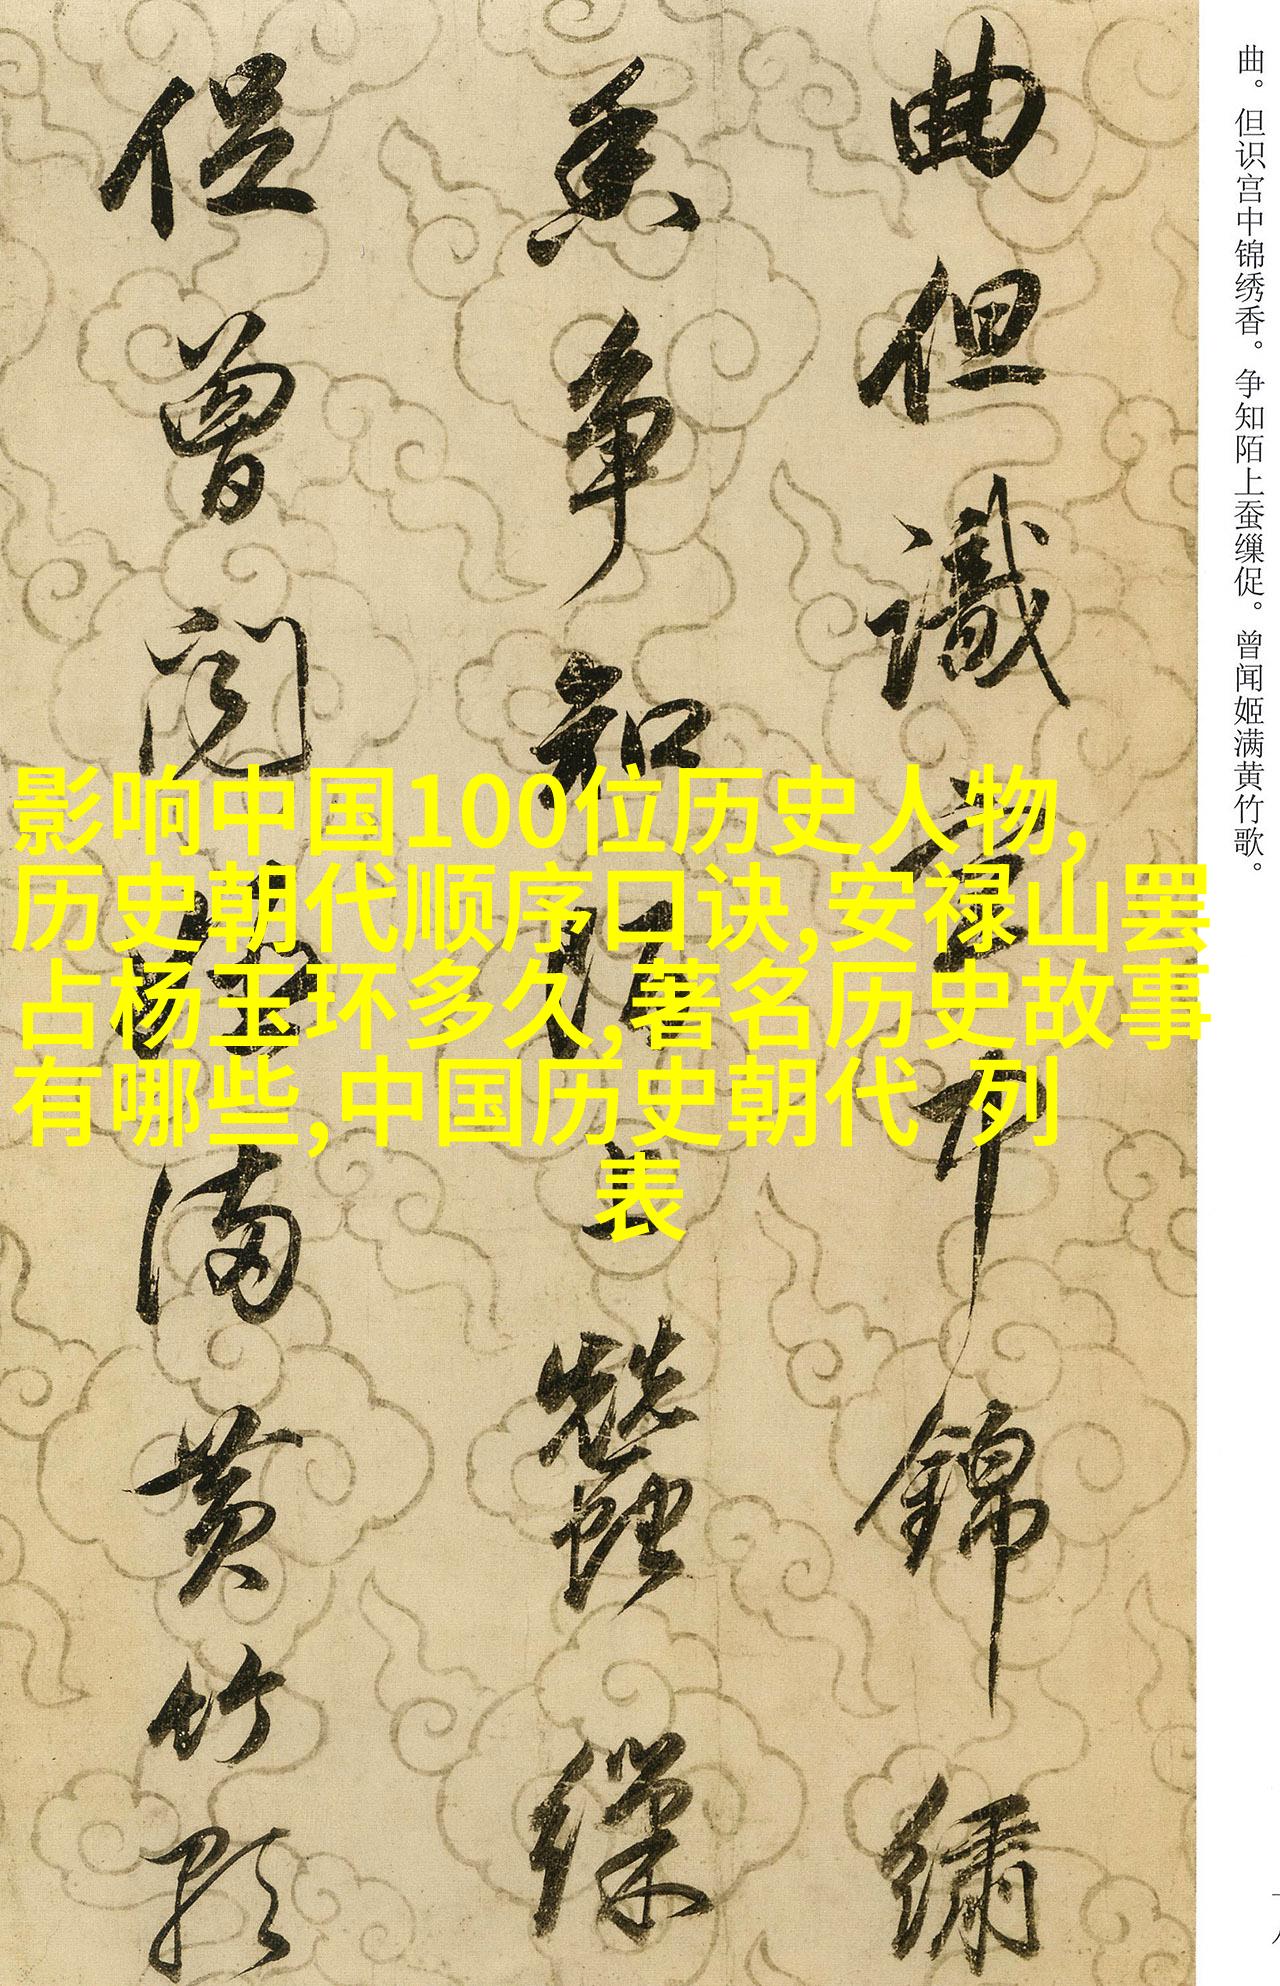 曲。但识宫中锦绣香。争知陌上蚕缫促。曾闻姬满黄竹歌。
曲但識宫中錦繡
香争知陌上蠶繅
促曾闻姬满黄竹歌
影响中国100位历史人物,
历史朝代顺序口诀,安禄山罢
占杨玉环多久,著名历史故事
有哪些,中国历史朝代 列
表